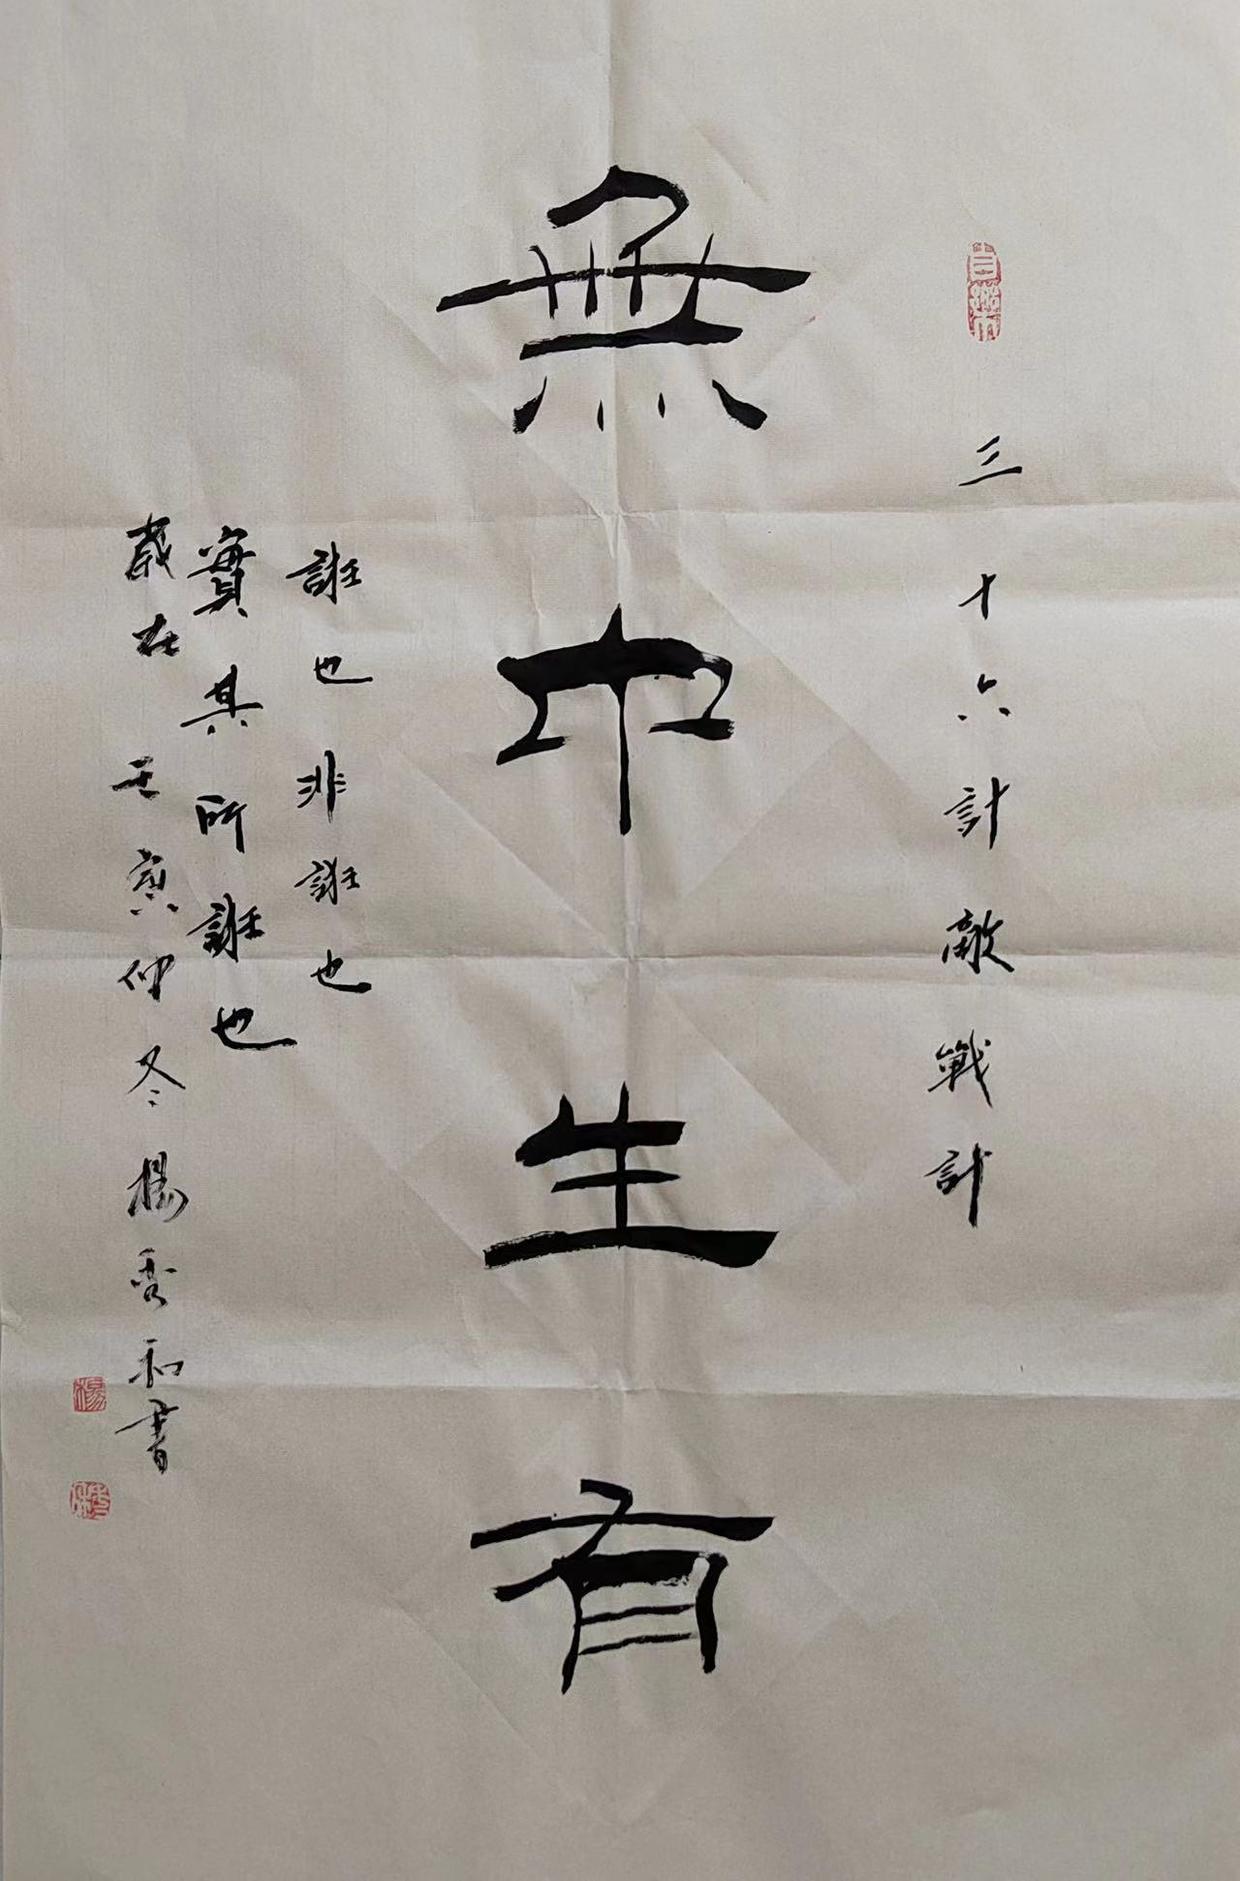 三十六計敵戰計
無中生有
誑也非誑也
實其所誑也
歲在壬寅仲冬楊秀和書
楊